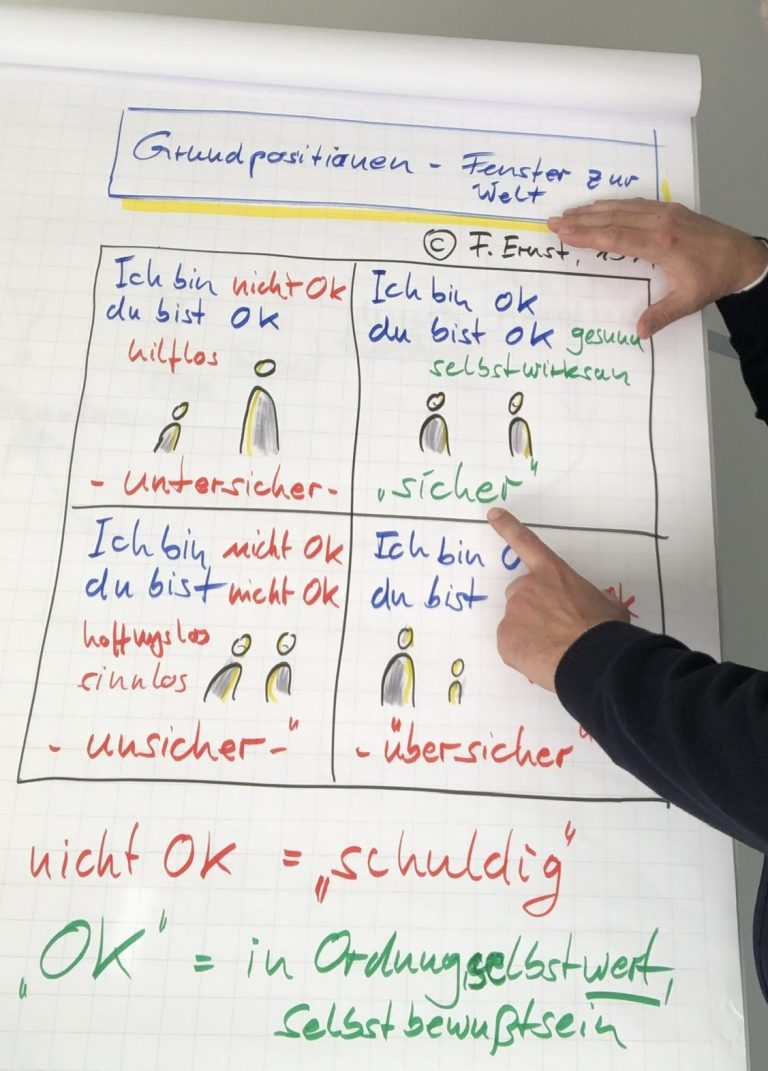 Grundpositionen - Fenster zur
Welt
© F. Ernst,
Ich bin nicht Ok
du bist OK
hilflos
- untersicher -
Ich bin ok
du bist ok gesund
selbstwirksam
„sicher"
Ich bin nicht Ok
du bist nicht Ok
hoffnungslos
sinnlos
- unsicher -"
Ich bin
du bist
- "übersicher"
nicht OK = „schuldig"
„OK" = in Ordnung, selbstwert,
Selbstbewußtsein